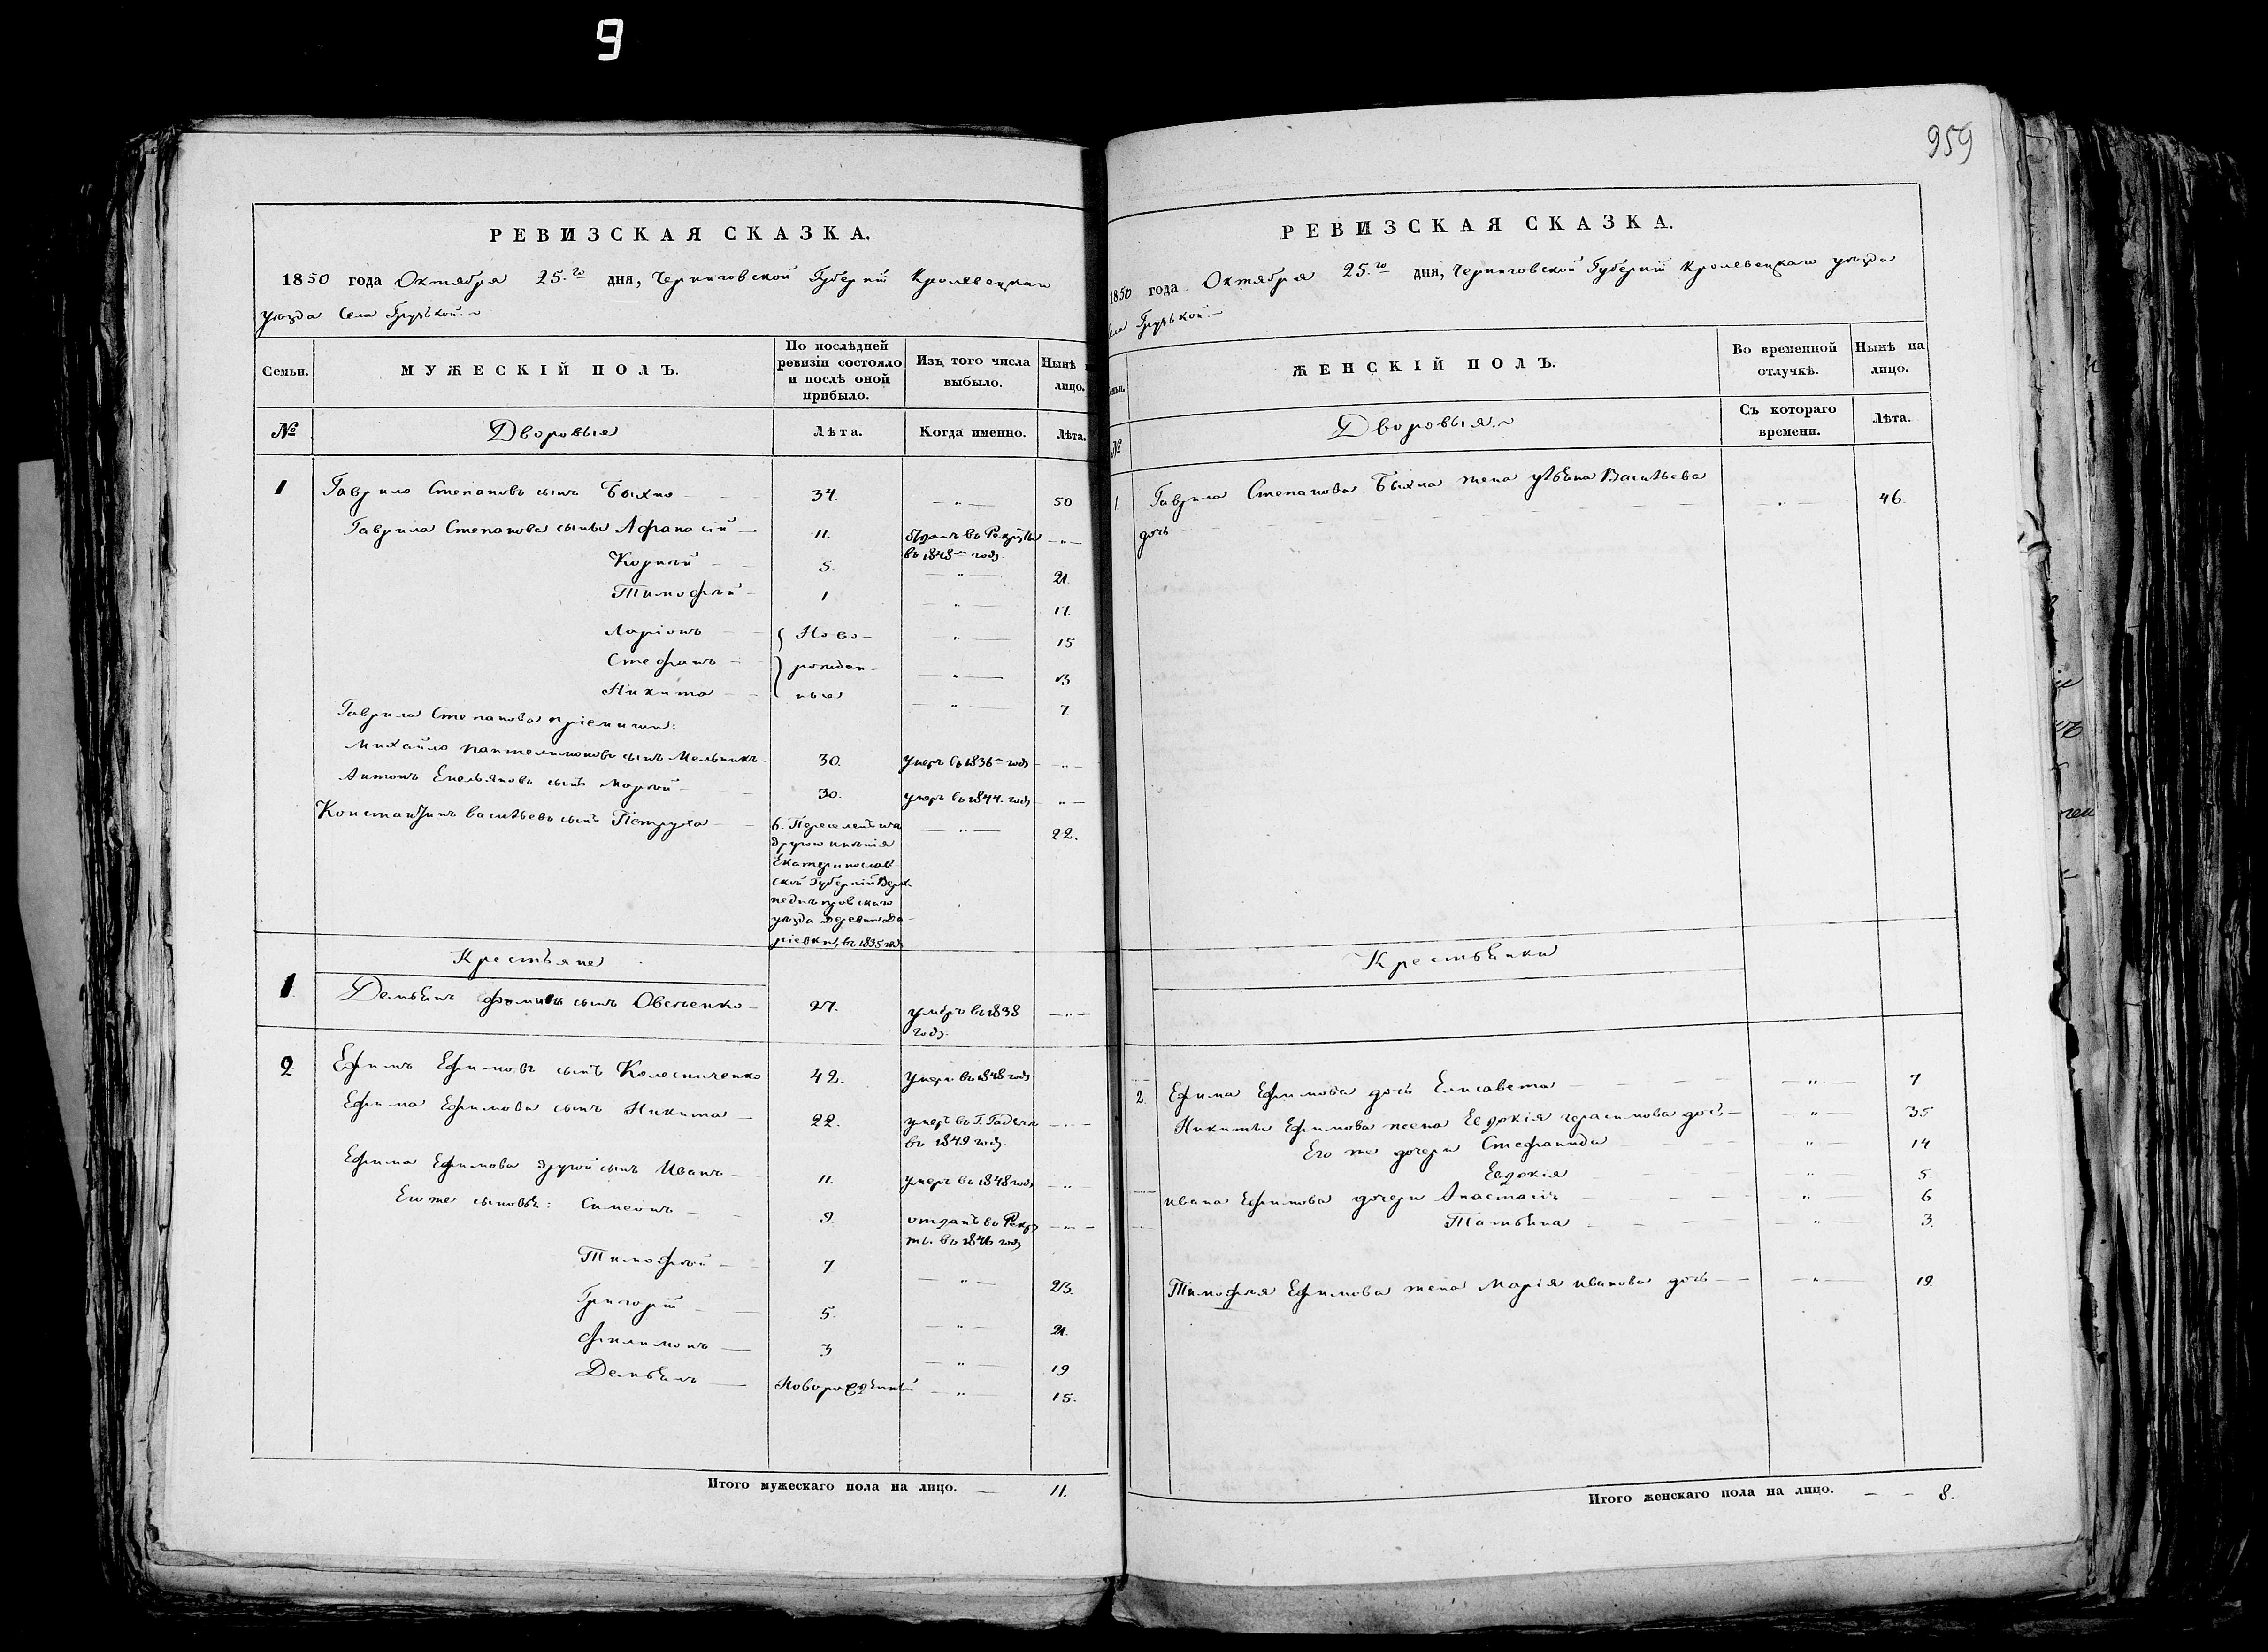 9
959
РЕВИЗСКАЯ СКАЗКА.
1850 года Октября 25.го дня, Черниговской Губерніи Кролевецкаго
уѣзда Села Грузькой.
Семьи. МУЖЕСКІЙ ПОЛЪ. По послѣдней ревизіи состояло и послѣ оной прибыло. Изъ того числа выбыло. Нынѣ на лицо.
№ Дворовые Лѣта. Когда именно. Лѣта.
1 Гаврило Степановъ сынъ Быхно 34. — „ — 50
Гаврила Степанова сынъ Афанасій 11. Отданъ въ Рекруты — „ —
въ 1848м году.
Корнѣй 5. — „ — 21.
Тимофѣй 1 — „ — 17.
Ларіонъ Ново- „ — 15
Стефанъ рожден- — „ — 13
Никита ные — „ — 7.
Гаврила Степанова пріемыши:
Михайло Пантелимоновъ сынъ Мельникъ 30. умеръ въ 1836м году — „ —
Антонъ Емельяновъ сынъ Мороз 30. умеръ въ 1844. году „ —
Константинъ Васильевъ сынъ Петруха 6. Переселенъ изъ — „ — 22.
другого имѣнія
Екатеринослав-
ской Губерніи Верх-
неднепровскаго
уѣзда деревни Да-
ріевки, въ 1835 году
Крестьяне
1. Демьянъ Фоминъ сынъ Овсѣенко 27. умеръ въ 1838 — „ —
году.
2 Ефимъ Ефимовъ сынъ Колесниченко 42. умеръ въ 1848 году
Ефима Ефимова сынъ Никита 22. умеръ въ Г. Гадячѣ — „ —
въ 1849 году.
Ефима Ефимова другой сынъ Иванъ 11. умеръ въ 1848 году — „ —
Его же сыновья: Симеонъ 9. отданъ въ Рекру — „ —
ты. въ 1846 году
Тимофѣй 7 — „ — 23.
Григорій 5. — „ — 21.
Филимонъ 3 — „ — 19
Демьянъ Новорожденный — „ — 15.
Итого мужескаго пола на лицо. — 11.
РЕВИЗСКАЯ СКАЗКА.
1850 года Октября 25.го дня, Черниговской Губерніи Кролевецкаго уѣзда
Села Грузькой.
Семьи. ЖЕНСКІЙ ПОЛЪ. Во временной отлучкѣ. Нынѣ на лицо.
№ Дворовыя. Съ котораго времени. Лѣта.
1 Гаврила Степанова Быхна жена Ульяна Васильева — „ — 46.
дочь
Крестьянки
2. Ефима Ефимова дочь Елисавета — „ — 7
Никиты Ефимова жена Евдокія Герасимова дочь — „ — 35
Его же дочери Стефанида „ — 14
Евдокія „ — 5
Ивана Ефимова дочери Анастасія „ — 6
Татьяна „ — 3.
Тимофѣя Ефимова жена Марія Иванова дочь — „ — 19
Итого женскаго пола на лицо. — — 8.